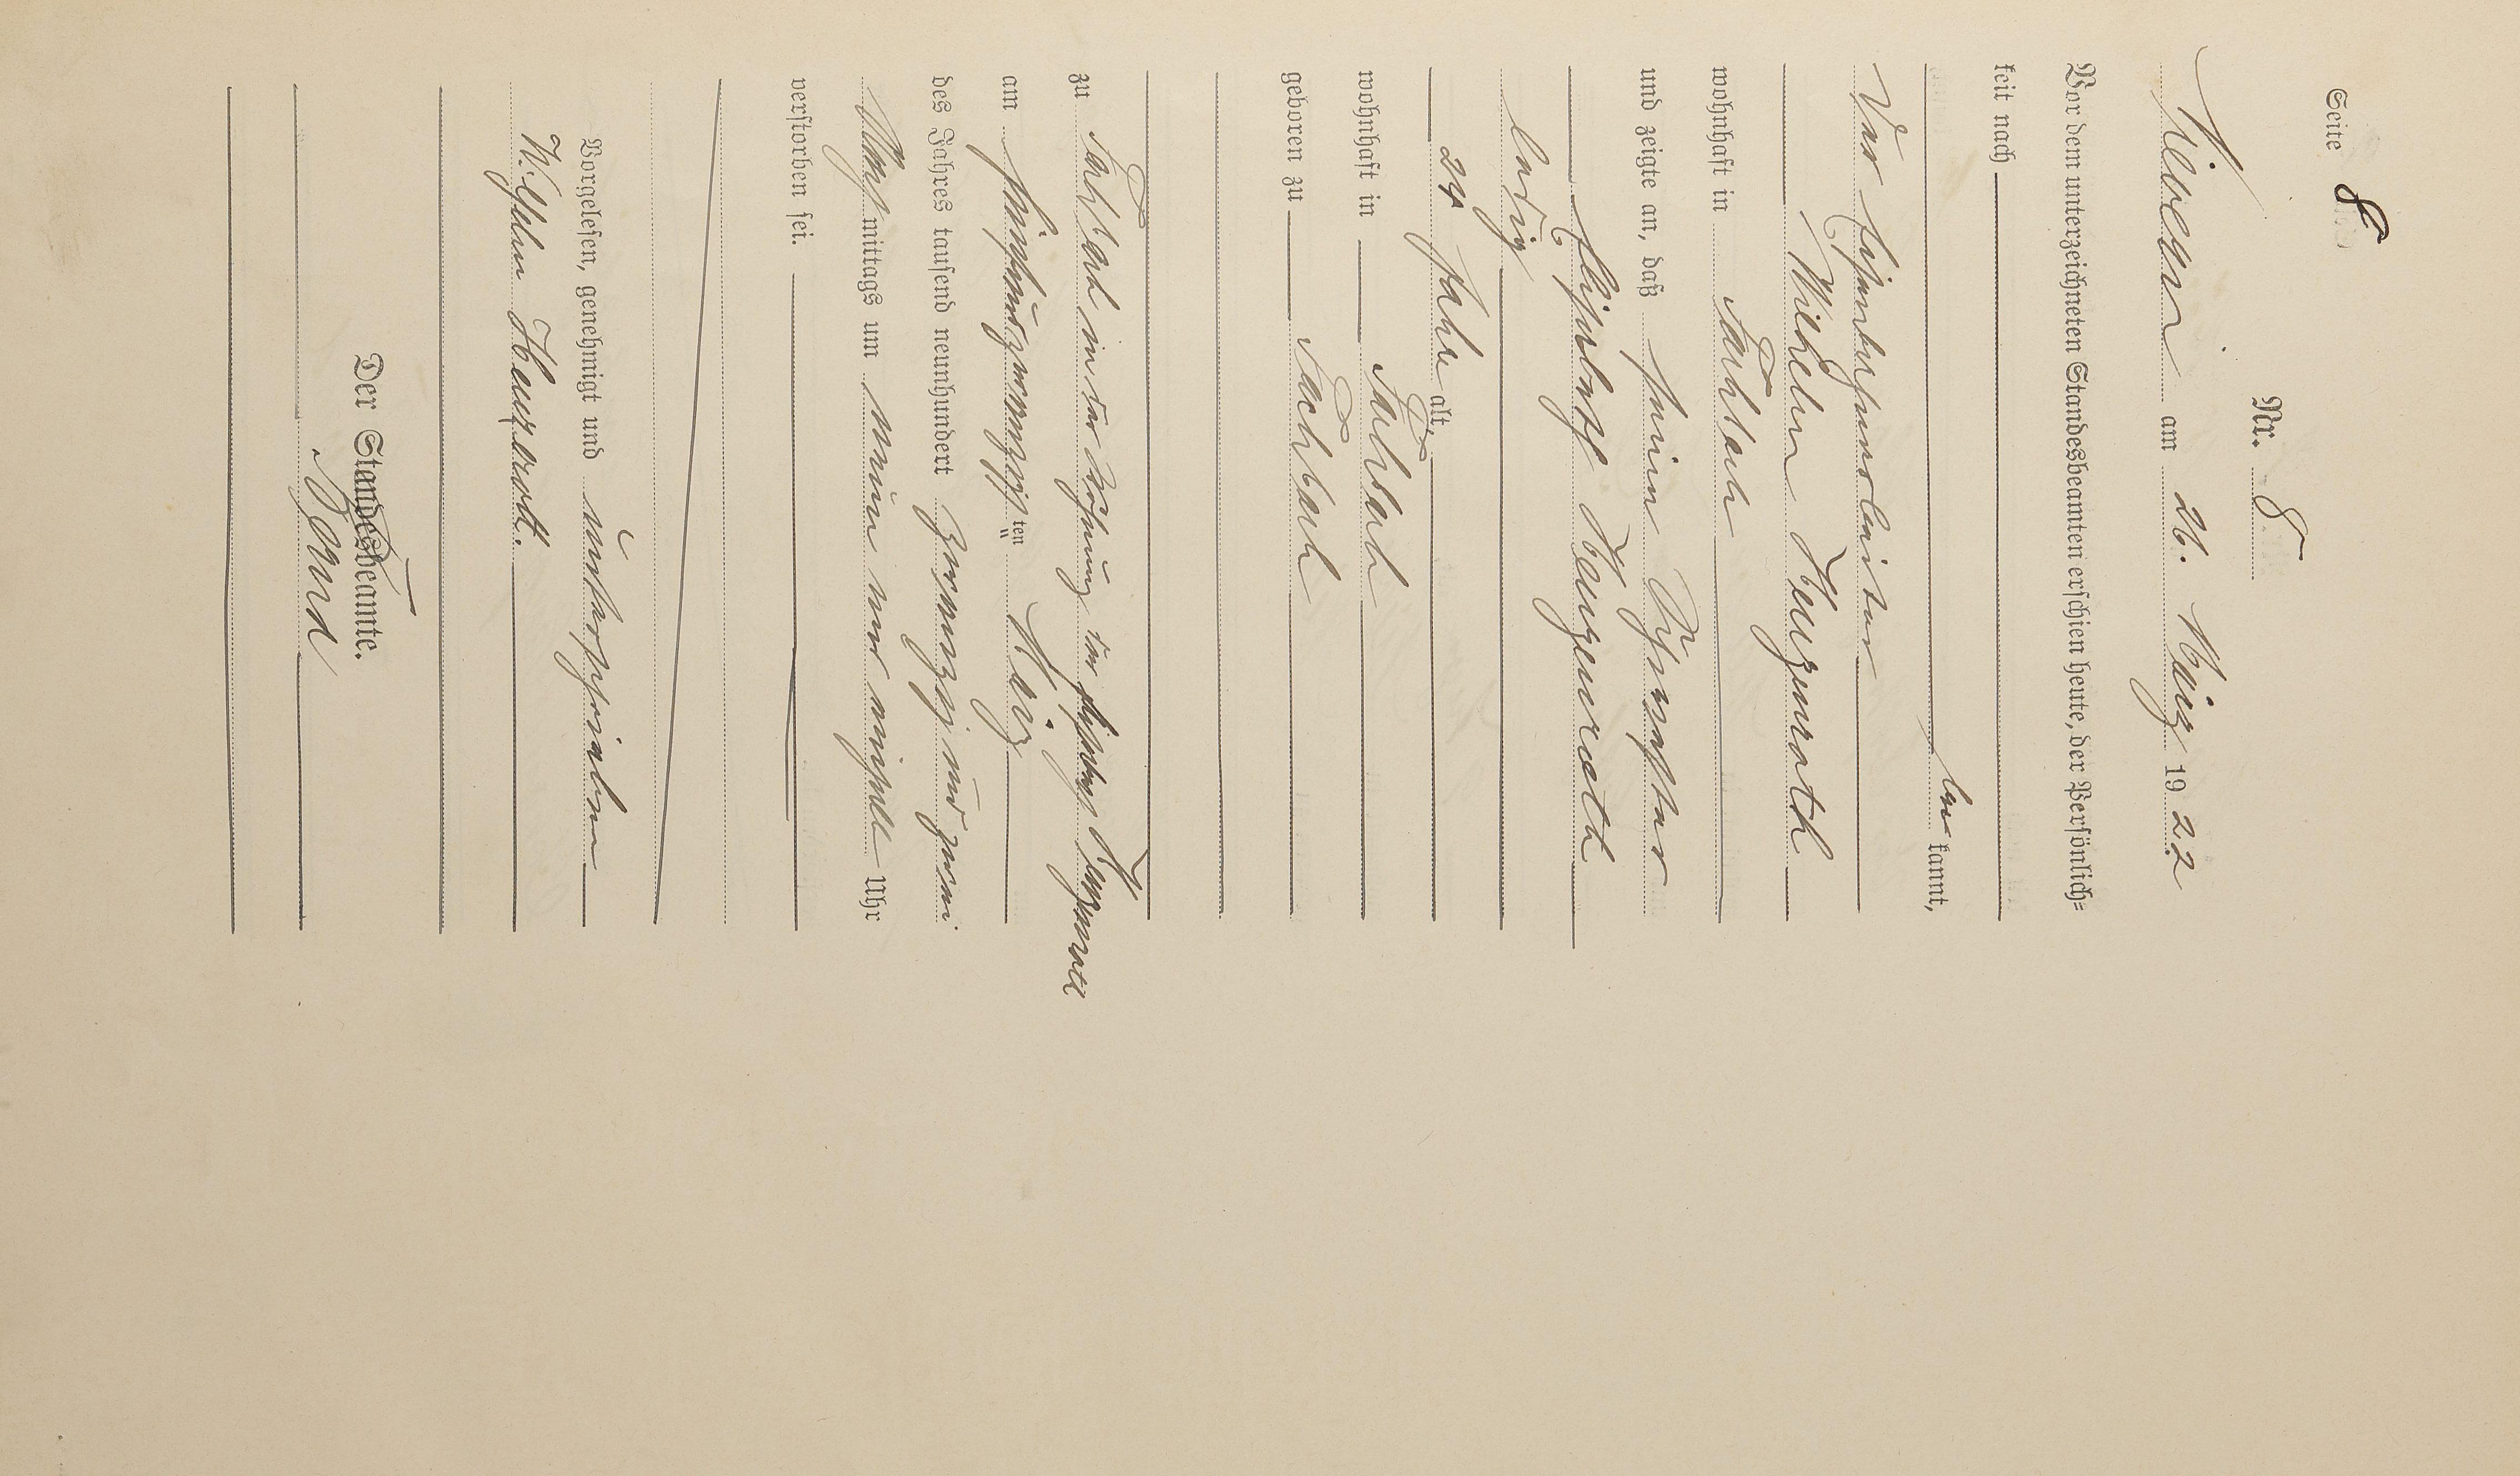 Seite 8
Nr. 8
am 26. März 1922
Vor dem unterzeichneten Standesbeamten erschien heute, der Persönlich-
keit nach
be kannt,
Der
Wilhelm Heuzeroth
wohnhaft in Fachbach
und zeigte an, daß seine Schwester
Elisabeth Heuzeroth
ledig
24 Jahre alt,
wohnhaft in Fachbach
geboren zu Fachbach
zu Fachbach in der Wohnung der
am fünfundzwanzigsten März
des Jahres tausend neunhundert zwanzig und zwei
mittags um neun und einhalb Uhr
verstorben sei.
Vorgelesen, genehmigt und unterschrieben
Wilhelm Heuzeroth.
Der Standesbeamte.